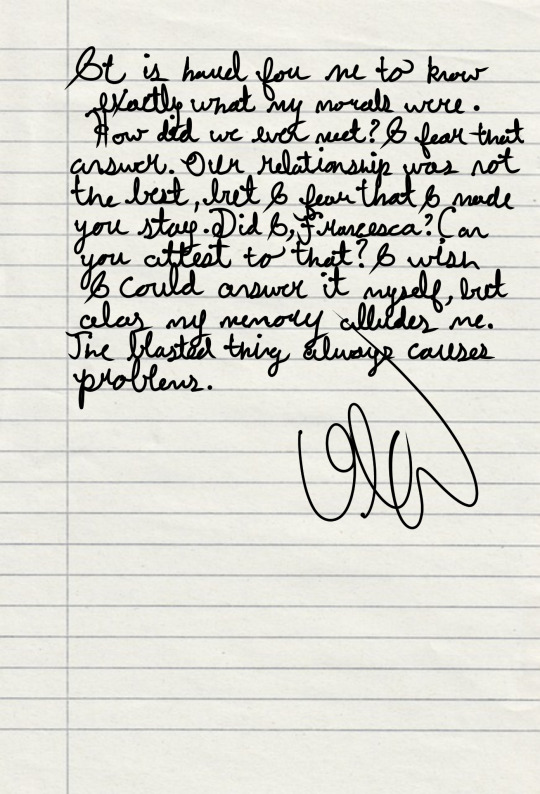 It is hard for me to know
exactly what my morals were.
How did we ever meet? I fear that
answer. Our relationship was not
the best, but I fear that I made
you stay. Did I, Francesca? Can
you attest to that? I wish
I could answer it myself, but
alas my memory alludes me.
The blasted thing always causes
problems.